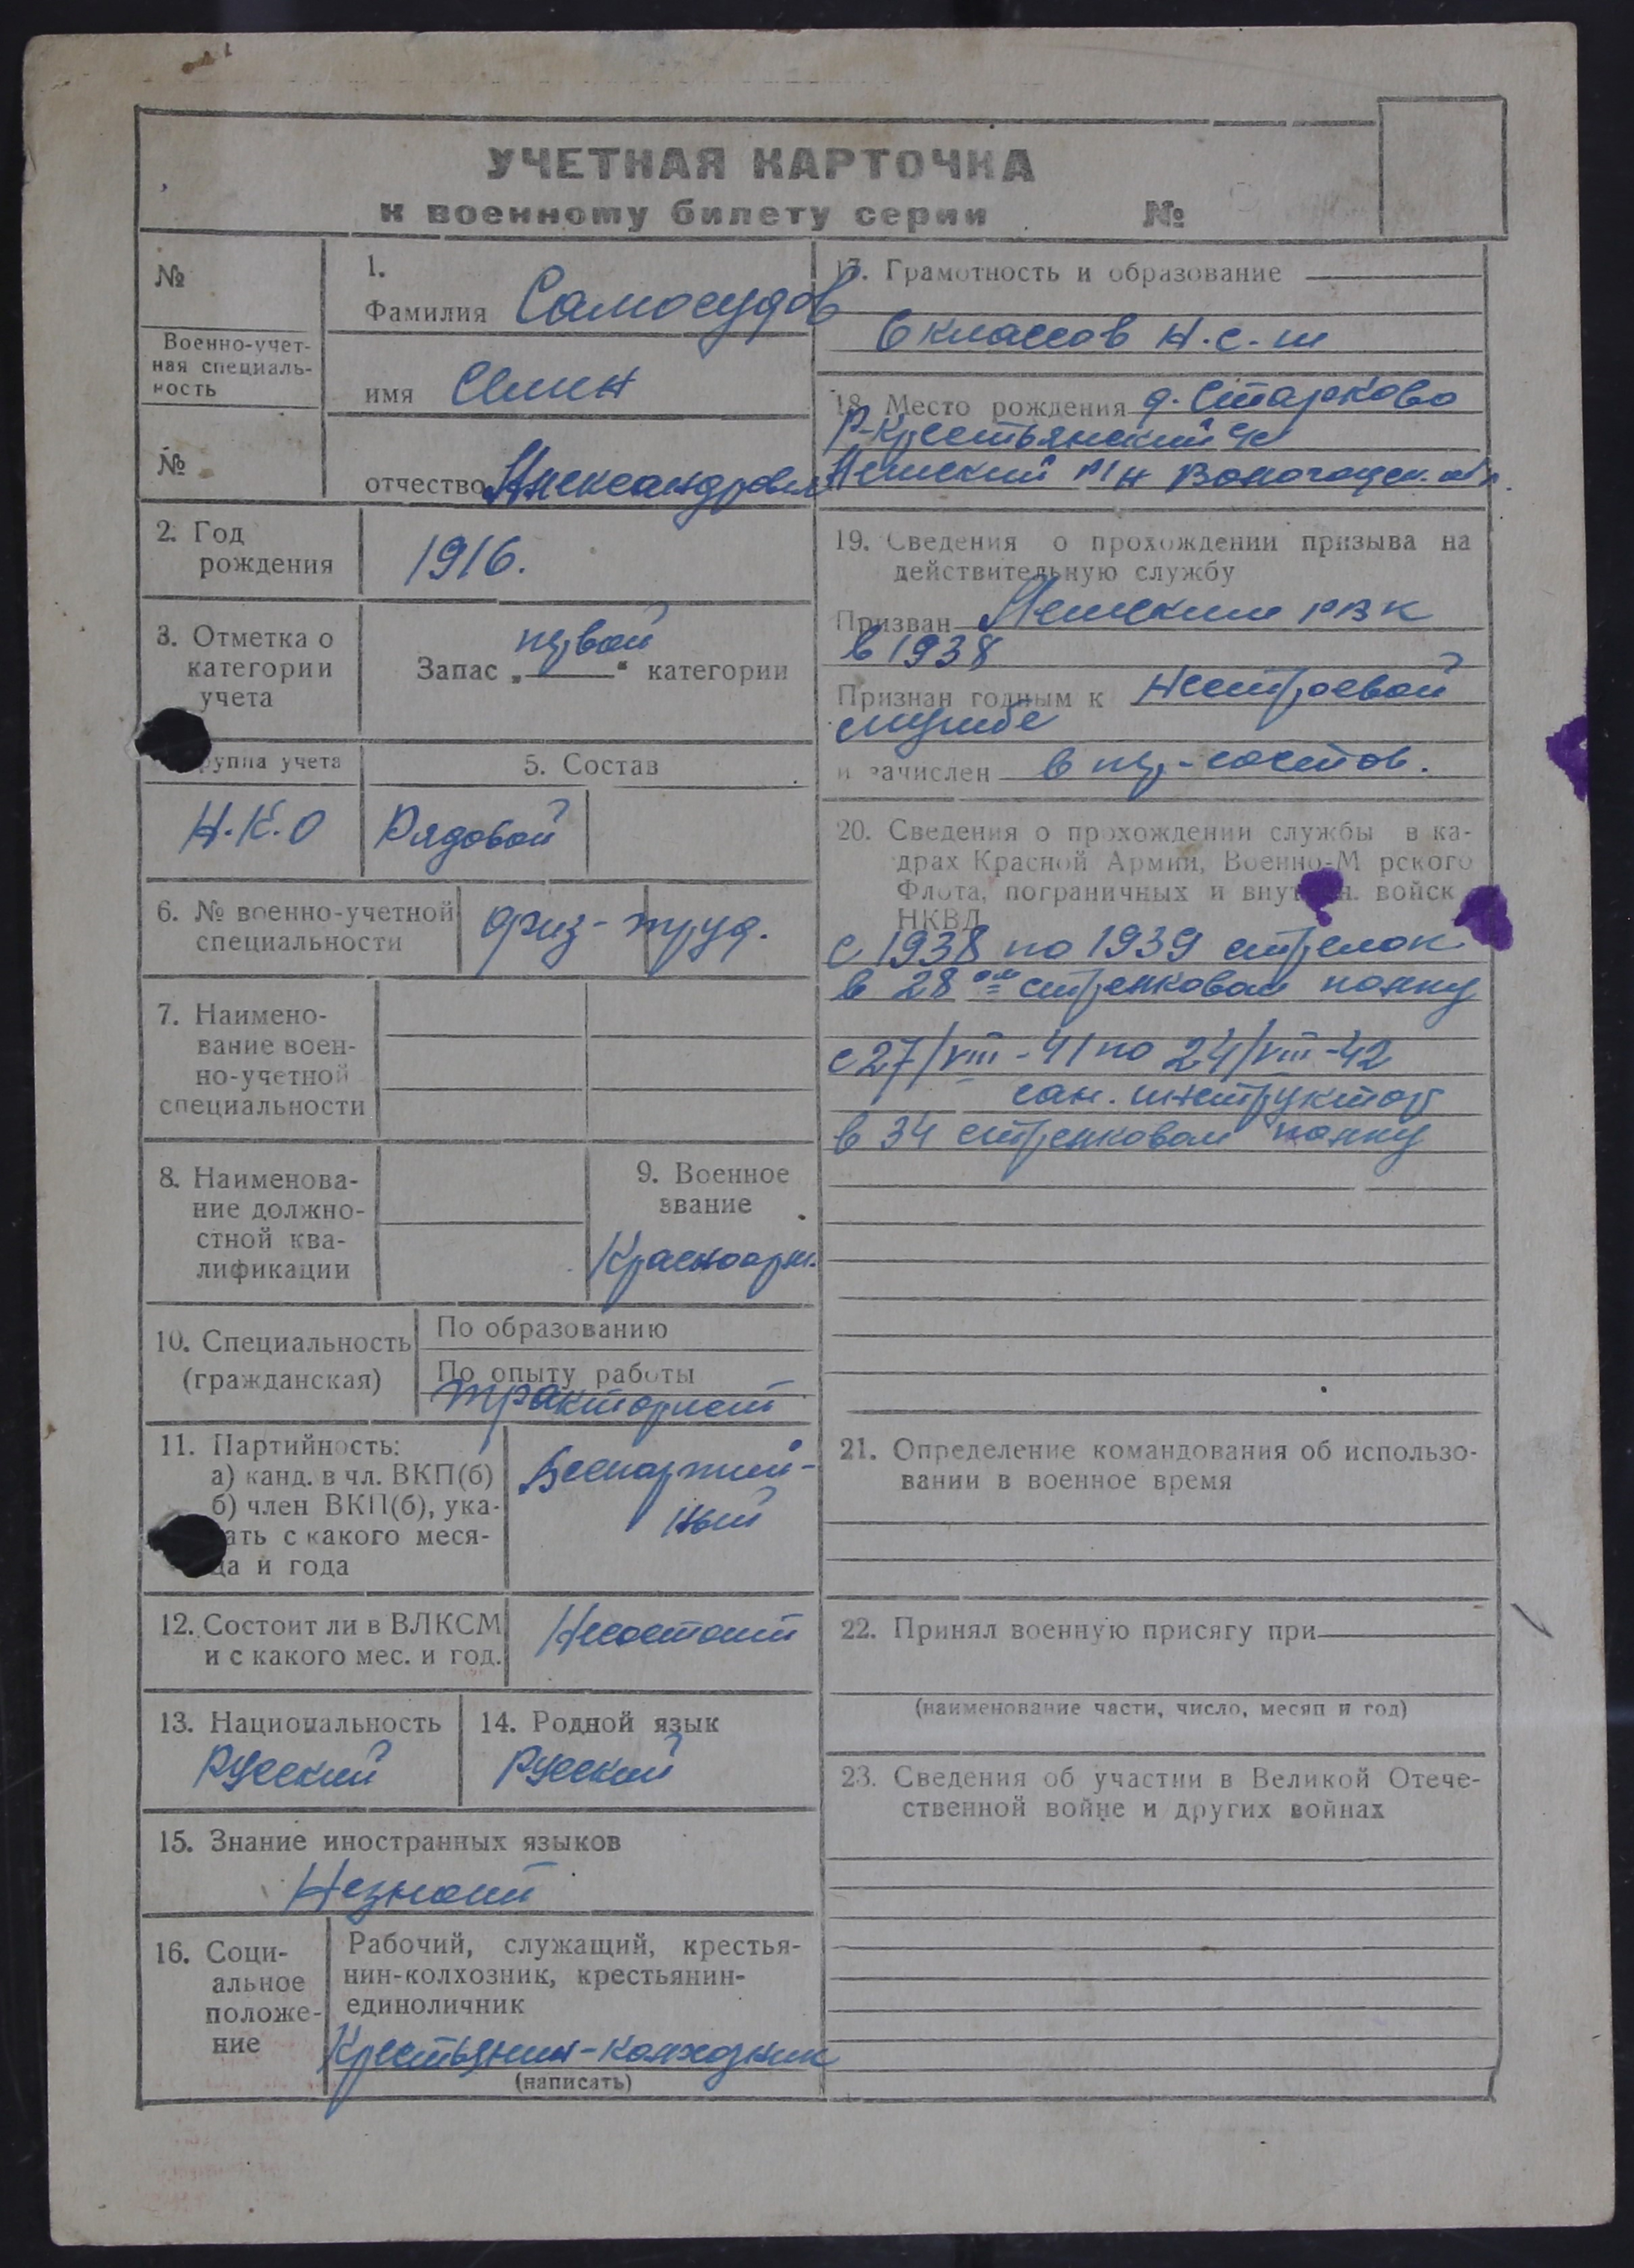 УЧЕТНАЯ КАРТОЧКА
к военному билету серии №
№
Военно-учет-
ная специаль-
ность
№
1.
Фамилия Самосудов
имя
отчество
2. Год
рождения
1916.
3. Отметка о
категории
учета
первой
Запас „ “ категории
руппа учета
Н.К.О
5. Состав
Рядовой
6. № военно-учетной
специальности
физ-труд.
7. Наимено-
вание воен-
но-учетной
специальности
8. Наименова-
ние должно-
стной ква-
лификации
9. Военное
звание
Красноарм.
10. Специальность
(гражданская)
По образованию
По опыту работы
тракторист
11. Партийность:
а) канд. в чл. ВКП(б)
б) член ВКП(б), ука-
ать с какого меся-
ца и года
Беспартий-
ный
12. Состоит ли в ВЛКСМ
и с какого мес. и год.
Несостоит
13. Национальность
Русский
14. Родной язык
Русский
15. Знание иностранных языков
Незнает
16. Соци-
альное
положе-
ние
Рабочий, служащий, крестья-
нин-колхозник, крестьянин-
единоличник
Крестьянин-колхозник
(написать)
17. Грамотность и образование
6 классов Н.с.ш
18. Место рождения д. Старково
Р-Крестьянский с/с
р/н Вологодск. обл.
19. Сведения о прохождении призыва на
действительную службу
Призван РВК
в 1938
Признан годным к нестроевой
службе
и зачислен в состав.
20. Сведения о прохождении службы в ка-
драх Красной Армии, Военно-М рского
Флота, пограничных и внут н. войск
НКВД
с 1938 по 1939 стрелок
в 28 ом стрелковом полку
с 27/VIII-41 по 24/VIII-42
сан. инструктор
в 34 стрелковом полку
21. Определение командования об использо-
вании в военное время
22. Принял военную присягу при
(наименование части, число, месяц и год)
23. Сведения об участии в Великой Отече-
ственной войне и других войнах